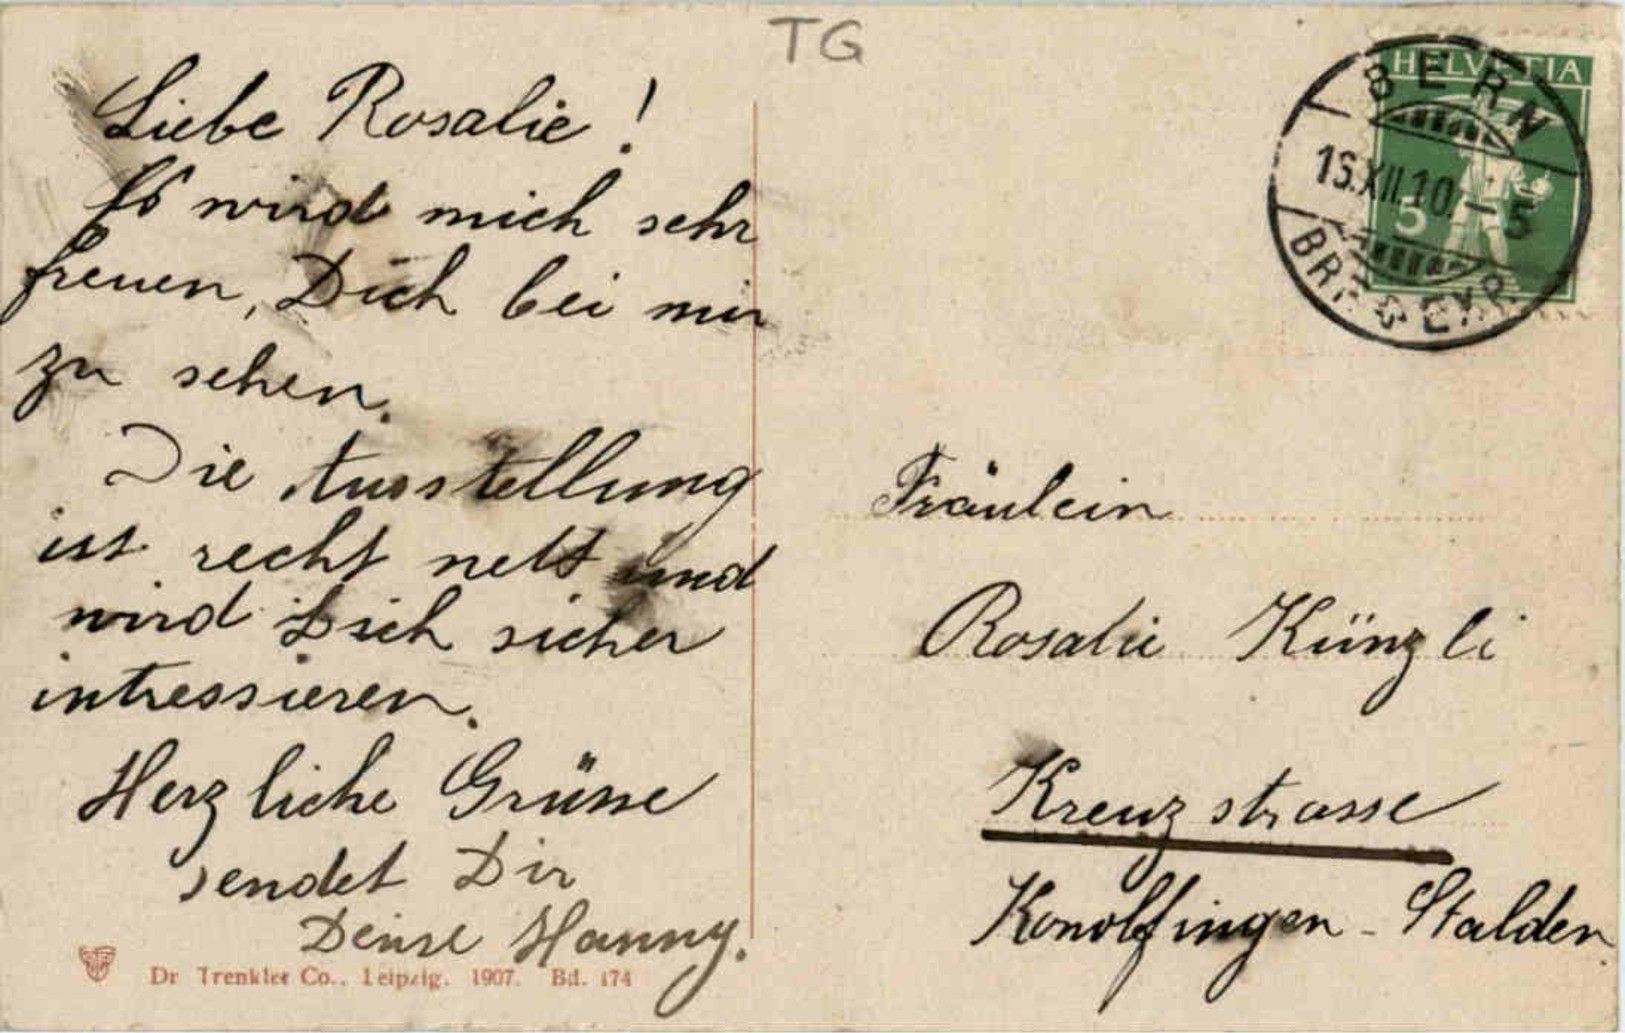 TG
Liebe Rosalie!
Es wird mich sehr
freuen, Dich bei mir
zu sehen.
Die Ausstellung
ist recht nett und
wird Dich sicher
intressieren.
Herzliche Grüsse
sendet Dir
Deine Hanny.
Dr Trenkler Co., Leipzig. 1907. Bd. 174
HELVETIA
5
BERN
15.XII.10.-5
BRF. EXP.
Fräulein
Rosalie Künzli
Kreuzstrasse
Konolfingen-Stalden